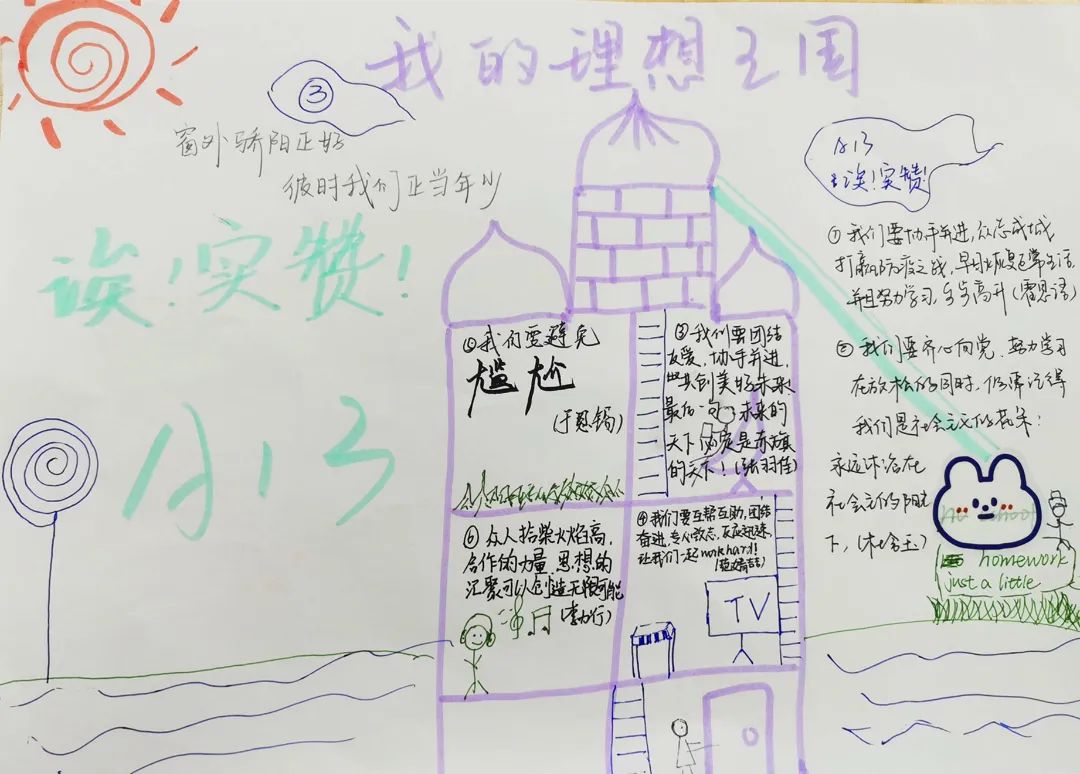 我的理想王国
③
窗外骄阳正好
彼时我们正当年少
诶!实赞!
A13
A13
诶!实赞!
① 我们要协手并进,众志成城
打赢防疫之战,早日恢复正常生活,
并且努力学习,步步高升(雷恩语)
② 我们要齐心向党、努力学习
在放松的同时,仍得记得
我们是社会主义的花朵:
永远沐浴在
社会主义的阳光
下,
⑥我们要避免
尴尬
③我们要团结
友爱,协手并进,
共创美好未来
最后一句:未来的
天下必定是赤旗
的天下!(张羽佳)
⑤ 众人拾柴火焰高,
合作的力量,思想的
汇聚可以创造无限可能
④我们要互帮互助,团结
奋进,专心致志,反应迅速,
让我们一起work hard!
TV
no school
homework
just a little